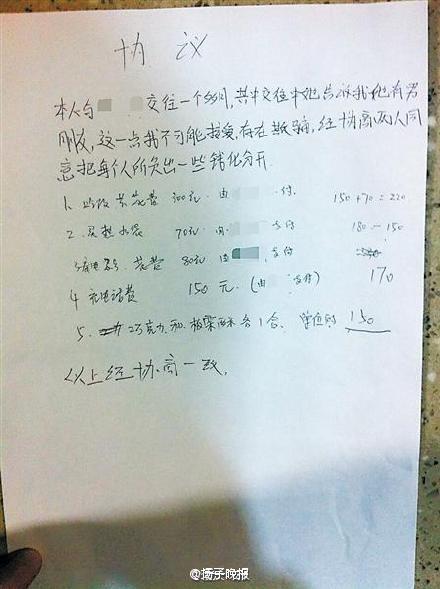 协 议
本人与 交往一个多月,其中交往中她告诉我她有男
朋友,这一点我不可能接受,存在欺骗,经协商两人同
意把每个人所负出一些钱化分开
1. 花费 300元 由 支付 150+70=220
2. 买 水袋 70元 由 支付 180-150
花费 80元 由 支付
170
4 充电话费 150元 (由 支付)
5. 巧克力和板栗酥各1合. 150
以上经协商一致,
@扬子晚报